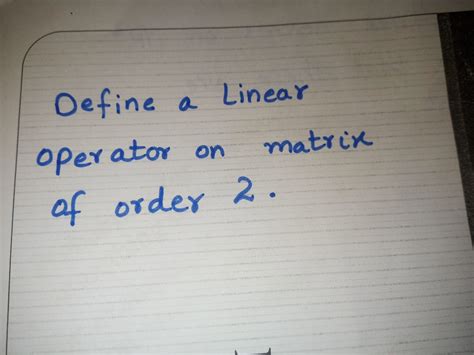 Define a Linear
operator on matrix
of order 2.